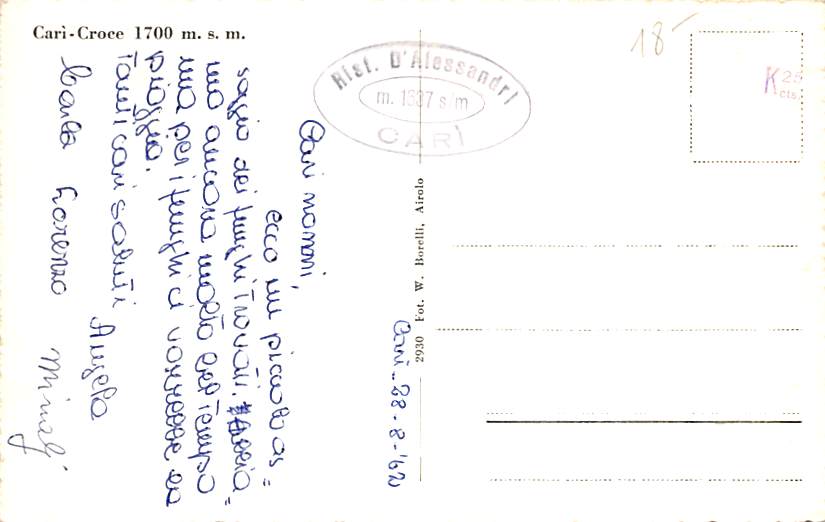 Carì-Croce 1700 m. s. m.
Rist. D'Alessandri
m. 1537 s/m
CARÌ
18-
K 25
cts.
2930 Fot. W. Borelli, Airolo
Carì - 28 - 8 - '62
Cari nonni,
ecco un piccolo as=
saggio dei funghi trovati. Abbia=
mo ancora molto bel tempo
ma per i funghi ci vorrebbe la
pioggia.
Tanti cari saluti
Angela
Carla Lorenzo